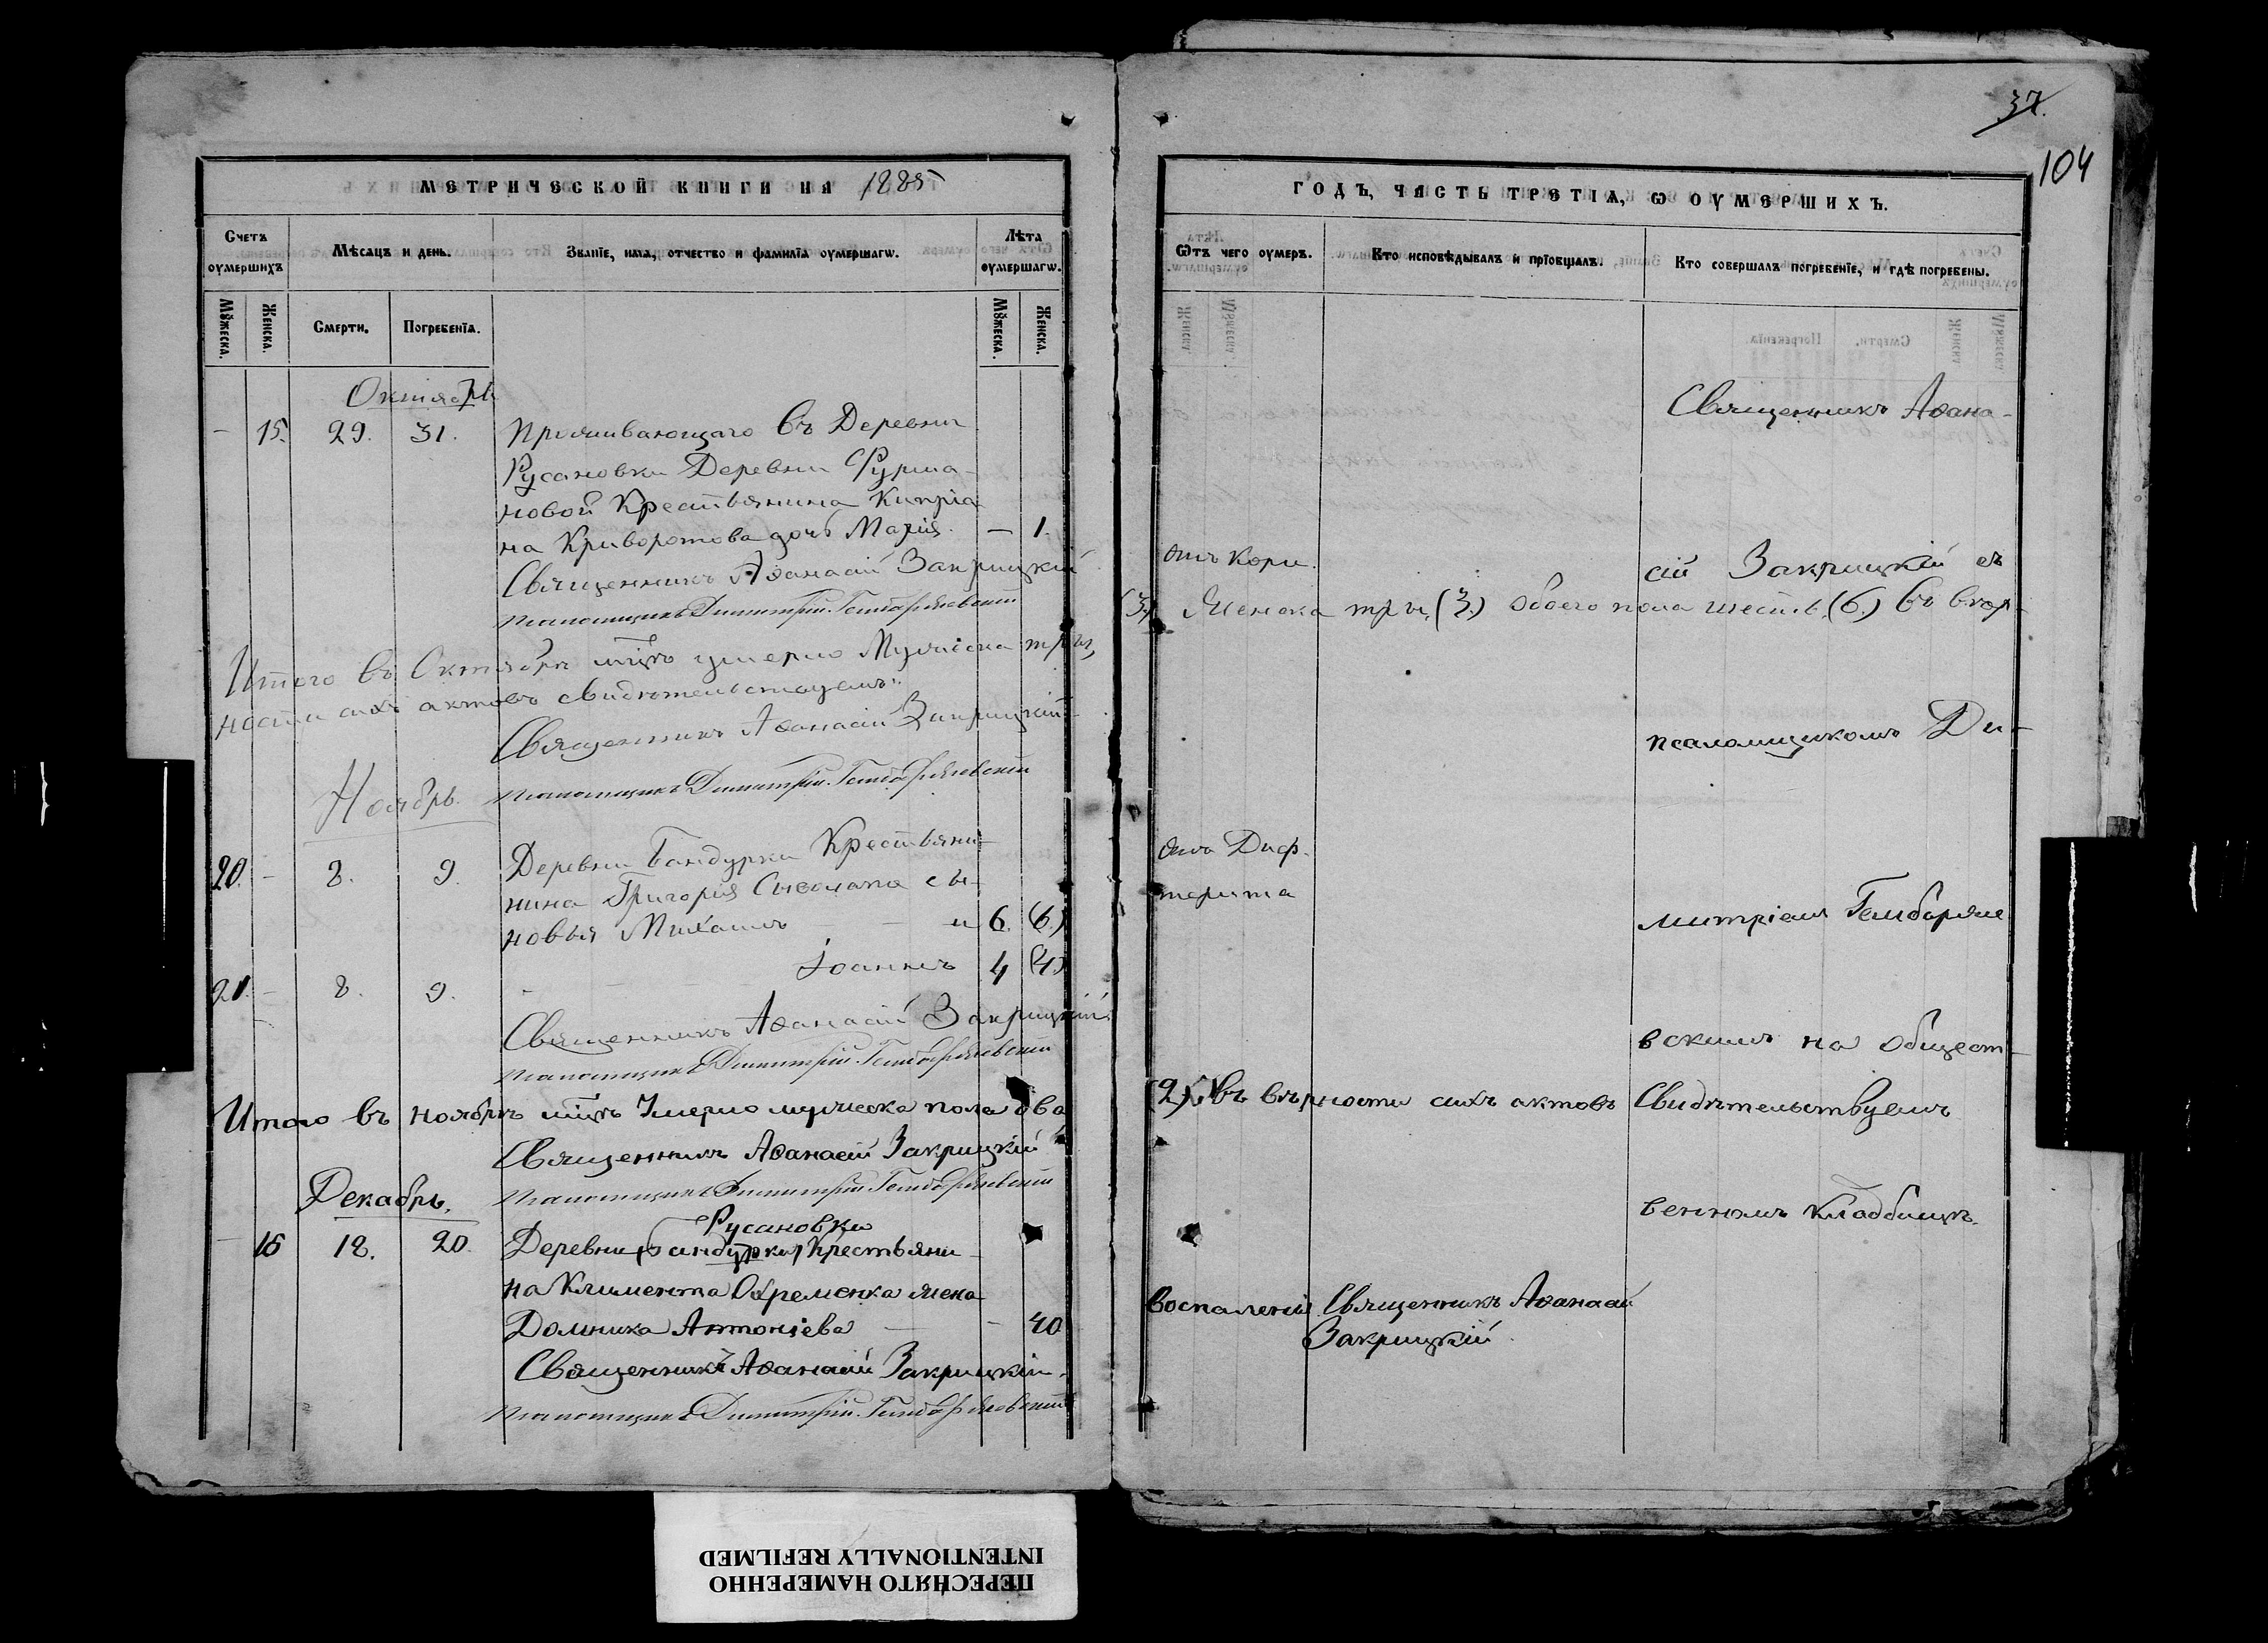 МЕТРИЧЕСКОЙ КНИГИ НА 1885
Счетъ оумершихъ
Мѣсяцъ и день.
Званїе, имѧ, отчество и фамилїѧ оумершагѡ.
Лѣта оумершагѡ.
Мꙋжеска.
Женска.
Смерти.
Погребенїѧ.
Мꙋжеска.
Женска.
Октябрь
— 15. 29. 31. Проживающаго въ Деревни
Русановки Деревни Фурма-
новой Крестьянина Кипріа
на Криворотова дочь Марія. — 1.
Священникъ Аѳанасій Закрицкій
Псаломщикъ Димитрій
Итого въ Октябрѣ мцѣ умерло Мужеска три,
ности сихъ актовъ свидѣтельствуемъ.
Священникъ Аѳанасій Закрицкій
Псаломщикъ Димитрій
Ноябрь.
20. — 8. 9. Деревни Бандурки Крестьяни-
нина Григорія сы-
новья Михаилъ — и 6. (6.)
Іоаннъ 4 (4.)
21. — 8. 9.
Священникъ Аѳанасій Закрицкій
Псаломщикъ Димитрій
Итого въ ноябрѣ мцѣ Умерло мужеска пола два
Священникъ Аѳанасій Закрицкій
Псаломщикъ Димитрій
Декабрь.
Русановки
— 16 18. 20. Деревни (Бандурки) Крестьяни-
на Климента Охременка жена
Домника Антоніева — — 40
Священникъ Аѳанасій Закрицкій.
Псаломщикъ Димитрій
37.
104
ГОДЪ, ЧАСТЬ ТРЕТІѦ, Ѡ ОУМЕРШИХЪ.
Ѿтъ чего оумеръ.
Кто исповѣдывалъ и прїобщалъ.
Кто совершалъ погребенїе, и гдѣ погребены.
Священникъ Аѳана-
отъ Кори.
сій Закрицкій съ
(3.) Женска три (3.) Обоего пола шесть (6.) Въ вѣр-
псаломщикомъ Ди-
отъ Диф-
терита
митріемъ
вскимъ на общест-
(2). Въ вѣрности сихъ актовъ Свидѣтельствуемъ
венномъ кладбищѣ.
Воспаленія Священникъ Аѳанасій
Закрицкій.
ПЕРЕСНЯТО НАМЕРЕННО
INTENTIONALLY REFILMED